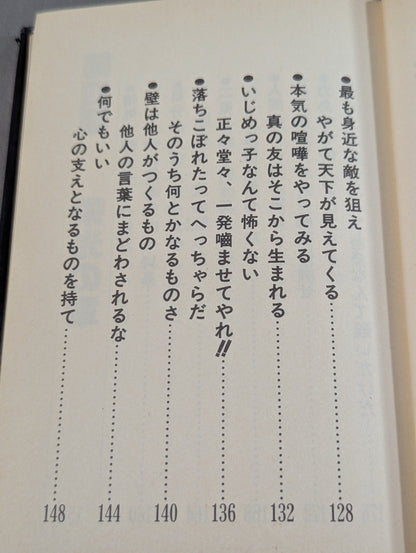 ●最も身近な敵を狙え
やがて天下が見えてくる……………128
●本気の喧嘩をやってみる
真の友はそこから生まれる……………132
●いじめっ子なんて怖くない
正々堂々、一発嚙ませてやれ!!……………136
●落ちこぼれたってへっちゃらだ
そのうち何とかなるものさ……………140
●壁は他人がつくるもの
他人の言葉にまどわされるな……………144
●何でもいい
心の支えとなるものを持て……………148